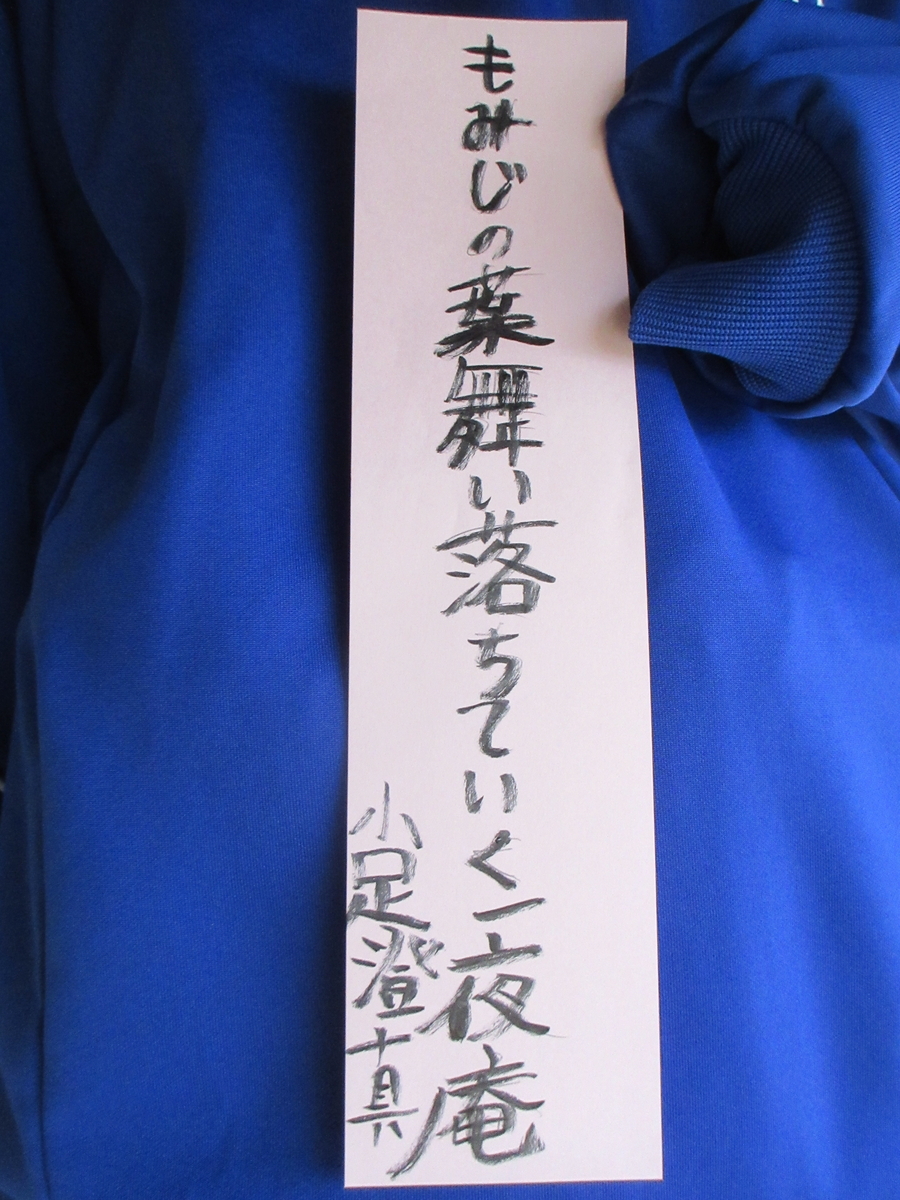 もみじの葉舞い落ちていく一夜庵
小足澄真